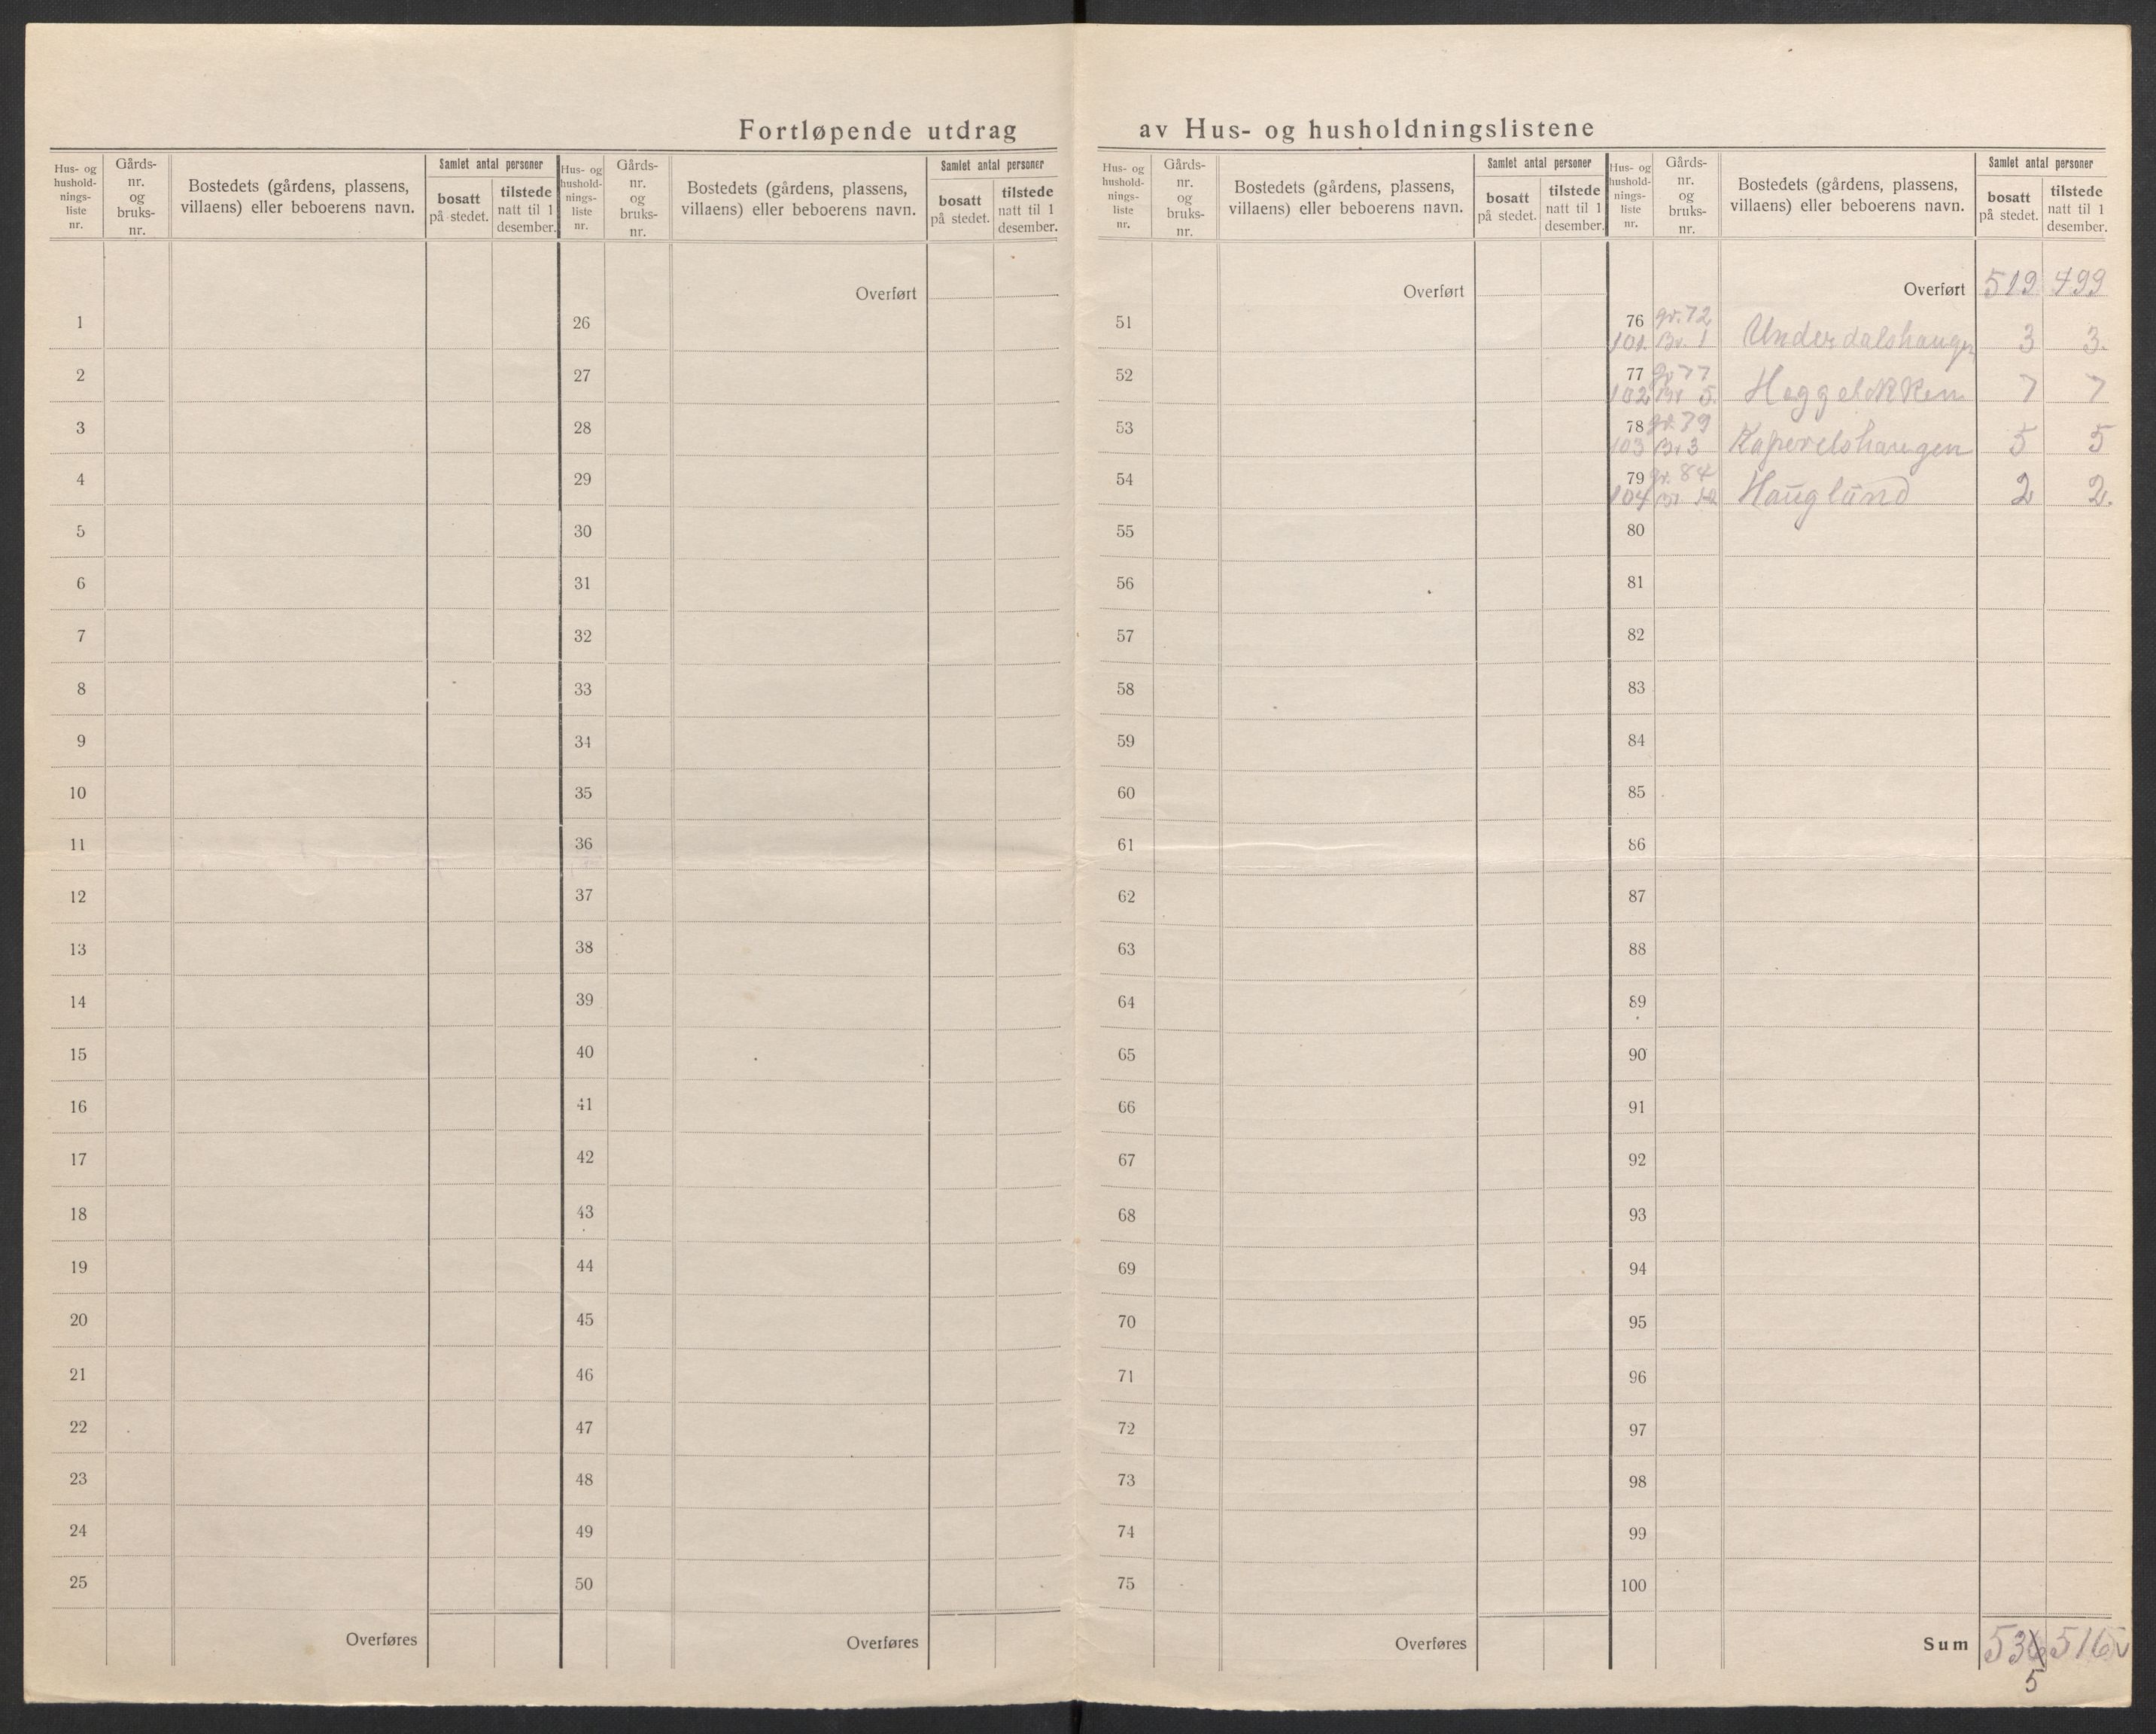 Fortløpende utdrag av Hus- og husholdningslistene
Hus- og hushold- nings- liste nr. | Gårds- nr. og bruks- nr. | Bostedets (gårdens, plassens, villaens) eller beboerens navn. | Samlet antal personer | bosatt på stedet. | tilstede natt til 1 desember.
1
2
3
4
5
6
7
8
9
10
11
12
13
14
15
16
17
18
19
20
21
22
23
24
25
Overføres
Hus- og hushold- nings- liste nr. | Gårds- nr. og bruks- nr. | Bostedets (gårdens, plassens, villaens) eller beboerens navn. | Samlet antal personer | bosatt på stedet. | tilstede natt til 1 desember.
Overført
26
27
28
29
30
31
32
33
34
35
36
37
38
39
40
41
42
43
44
45
46
47
48
49
50
Overføres
Hus- og hushold- nings- liste nr. | Gårds- nr. og bruks- nr. | Bostedets (gårdens, plassens, villaens) eller beboerens navn. | Samlet antal personer | bosatt på stedet. | tilstede natt til 1 desember.
Overført
51
52
53
54
55
56
57
58
59
60
61
62
63
64
65
66
67
68
69
70
71
72
73
74
75
Overføres
Hus- og hushold- nings- liste nr. | Gårds- nr. og bruks- nr. | Bostedets (gårdens, plassens, villaens) eller beboerens navn. | Samlet antal personer | bosatt på stedet. | tilstede natt til 1 desember.
Overført 519 499
76 gr. 72
101. Br. 1 Underdalshaugen 3 3.
77 gr 77
102 Br 5. Heggeløkken 7 7
78 gr. 79
103 Br 3 Kaperelshaugen 5 5
79 gr. 84
104 Br. 12 Hauglund 2 2.
80
81
82
83
84
85
86
87
88
89
90
91
92
93
94
95
96
97
98
99
100
Sum 536 516 v
5